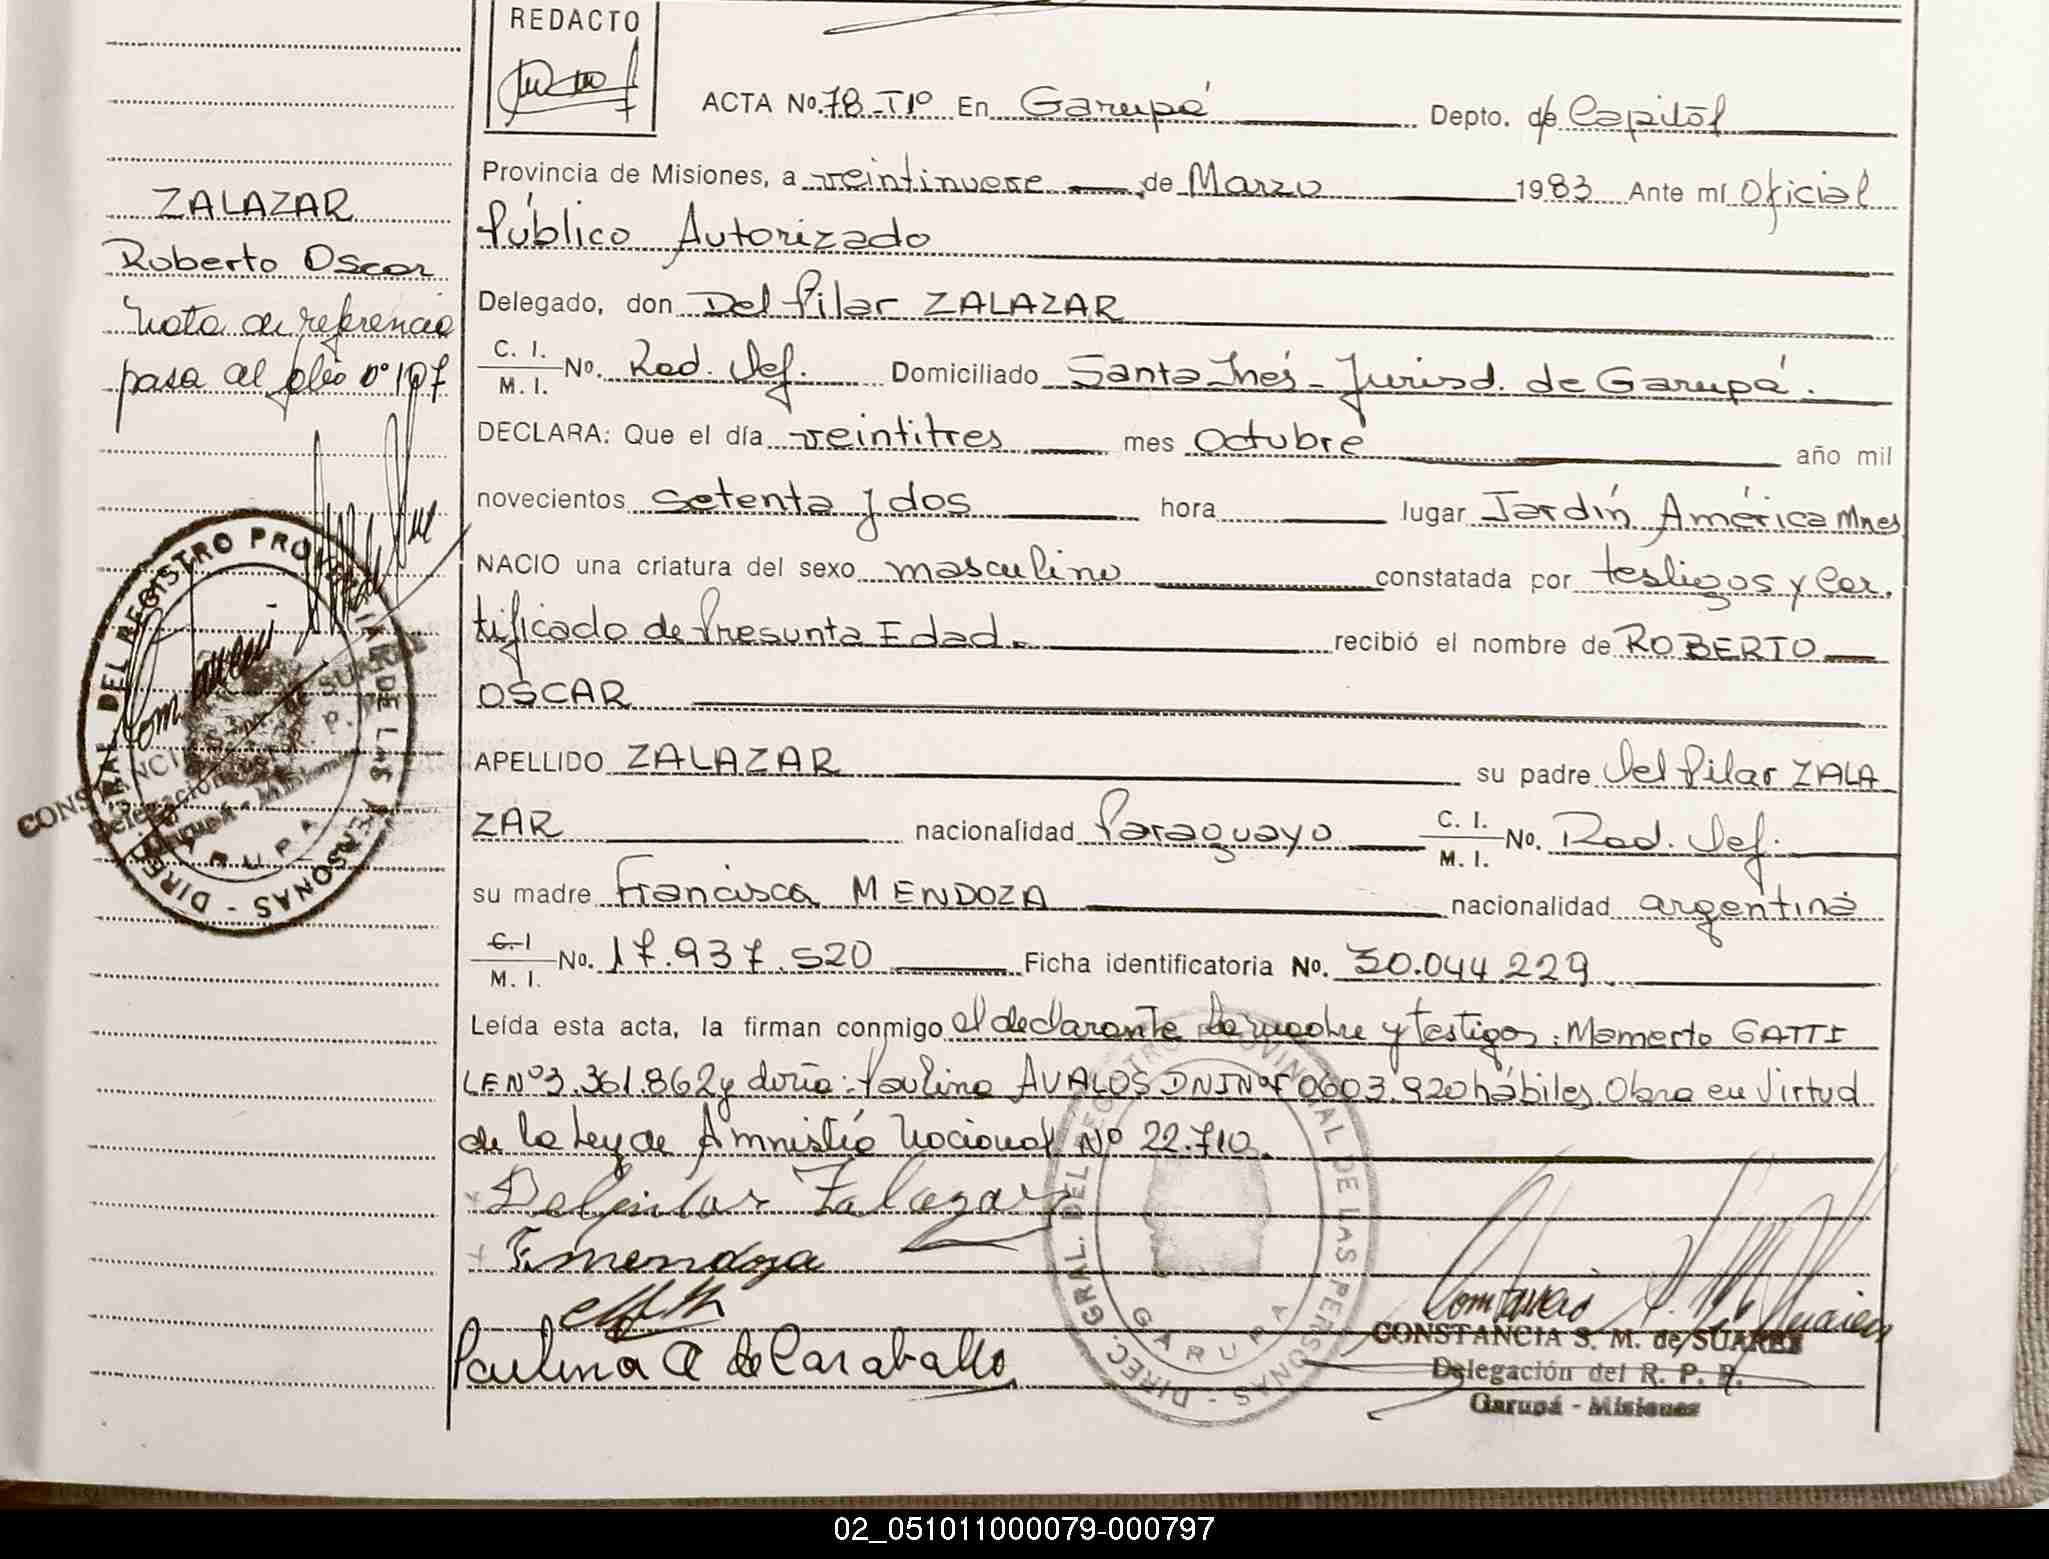 REDACTO
ACTA No. 78-TIº En Garupá Depto. de Capitál
Provincia de Misiones, a veintinueve de Marzo 1983 Ante mí Oficial
Público Autorizado
Delegado, don Del Pilar ZALAZAR
C. I. M. I. No. Rad. Def. Domiciliado Santa Inés - Jurisd. de Garupá.
DECLARA: Que el día veintitres mes Octubre año mil
novecientos setenta y dos hora lugar Jardín América Mnes
NACIO una criatura del sexo masculino constatada por testigos y Cer.
tificado de Presunta Edad. recibió el nombre de ROBERTO
OSCAR
APELLIDO ZALAZAR su padre Del Pilar ZALA
ZAR nacionalidad Paraguayo C. I. M. I. No. Rad. Def.
su madre Francisca MENDOZA nacionalidad argentina
C. I M. I. No. 17.937.520 Ficha identificatoria No. 30.044.229
Leída esta acta, la firman conmigo el declarante la madre y testigos: Mamerto GATTI
LE Nº 3.361.862 y doña: Paulina AVALOS DNI Nº F0603.920 hábiles. Obra en Virtud
de la Ley de Amnistía Nacional Nº 22.710.
Delpilar Zalazar
F. mendoza
Paulina A de Caraballo
CONSTANCIA S. M. de SUAREZ
Delegación del R. P. P.
Garupá - Misiones
DIREC. GRAL. DEL REGISTRO PROVINCIAL DE LAS PERSONAS -
GARUPA
ZALAZAR
Roberto Oscar
Nota de referencia
pasa al folio nº 197
DIREC. GRAL. DEL REGISTRO PROVINCIAL DE LAS PERSONAS -
GARUPA
CONSTANCIA S. M. DE SUAREZ
Delegación R. P. P.
Garupá - Misiones
02_051011000079-000797